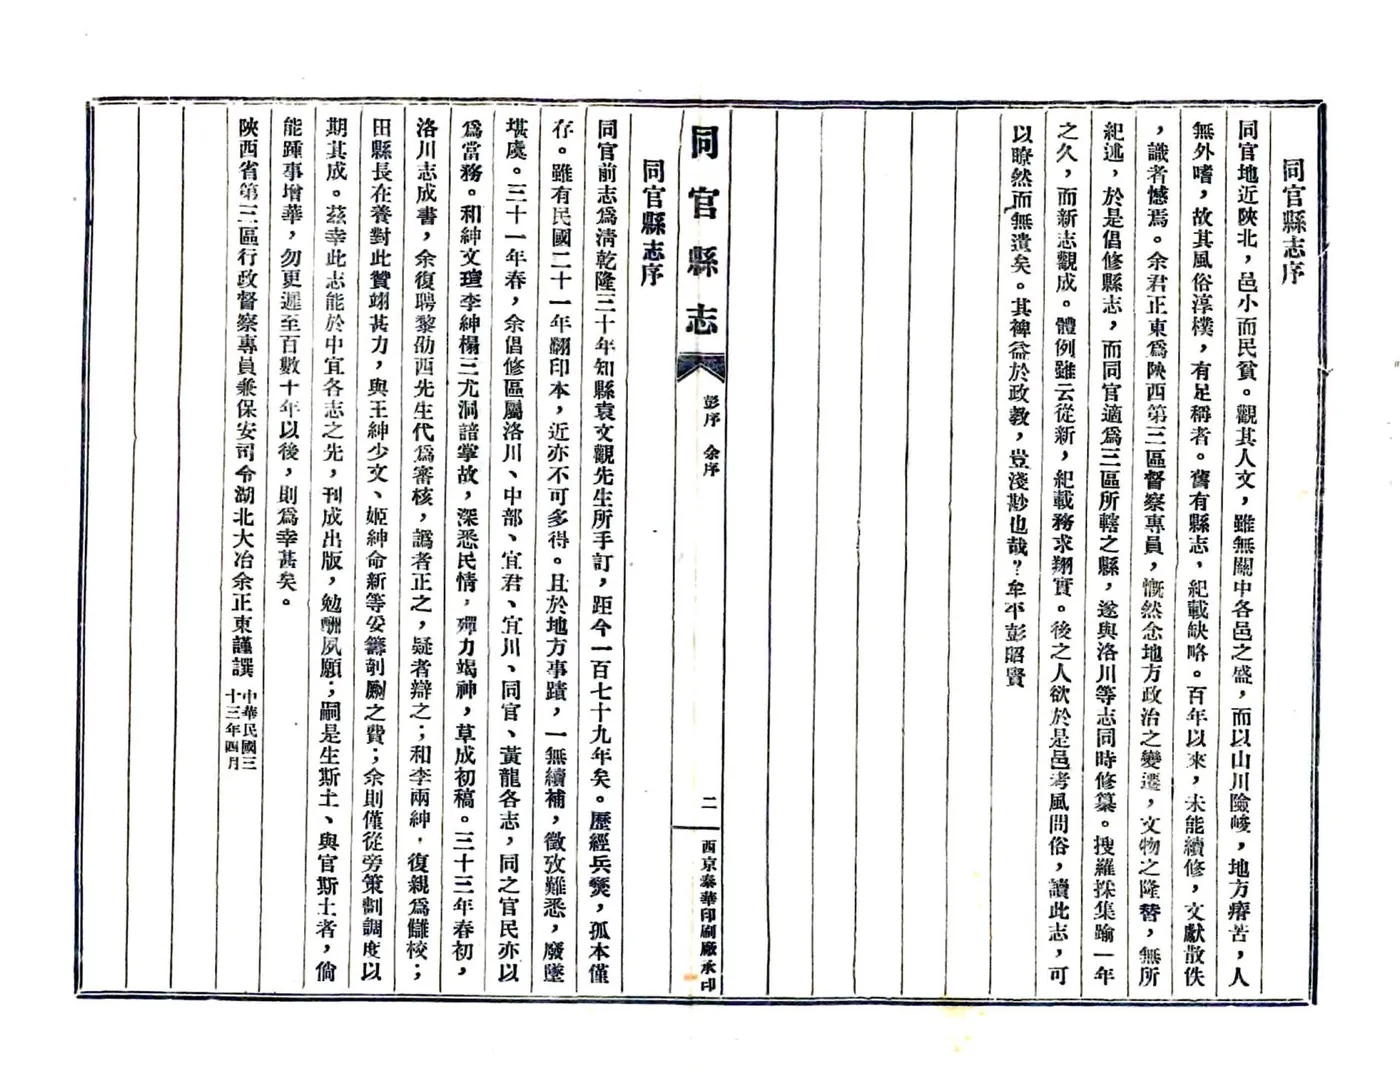 同官縣志序
同官地近陝北，邑小而民貧。觀其人文，雖無關中各邑之盛，而以山川險峻，地方瘠苦，人
無外嗜，故其風俗淳樸，有足稱者。舊有縣志，紀載缺略。百年以來，未能續修，文獻散佚
，識者憾焉。余君正東爲陝西第三區督察專員，慨然念地方政治之變遷，文物之隆替，無所
紀述，於是倡修縣志，而同官適爲三區所轄之縣，遂與洛川等志同時修纂。搜羅採集踰一年
之久，而新志觀成。體例雖云從新，紀載務求翔實。後之人欲於是邑考風問俗，讀此志，可
以瞭然而無遺矣。其裨益於政教，豈淺尠也哉？牟平彭昭賢
同官縣志
彭序 余序
二
西京泰華印刷廠承印
同官縣志序
同官前志爲清乾隆三十年知縣袁文觀先生所手訂，距今一百七十九年矣。歷經兵燹，孤本僅
存。雖有民國二十一年翻印本，近亦不可多得。且於地方事蹟，一無續補，徵攷難悉，廢墜
堪虞。三十一年春，余倡修區屬洛川、中部、宜君、宜川、同官、黃龍各志，同之官民亦以
爲當務。和紳文瑄李紳楊三尤洞諳掌故，深悉民情，殫力竭神，草成初稿。三十三年春初，
洛川志成書，余復聘黎劭西先生代爲審核，譌者正之，疑者辯之；和李兩紳，復親爲讎校；
田縣長在養對此贊翊甚力，與王紳少文、姬紳命新等妥籌剞劂之費；余則僅從旁策劃調度以
期其成。茲幸此志能於中宜各志之先，刊成出版，勉酬夙願；嗣是生斯土、與官斯土者，倘
能踵事增華，勿更遲至百數十年以後，則爲幸甚矣。
陝西省第三區行政督察專員兼保安司令湖北大冶余正東謹譔 中華民國三
十三年四月